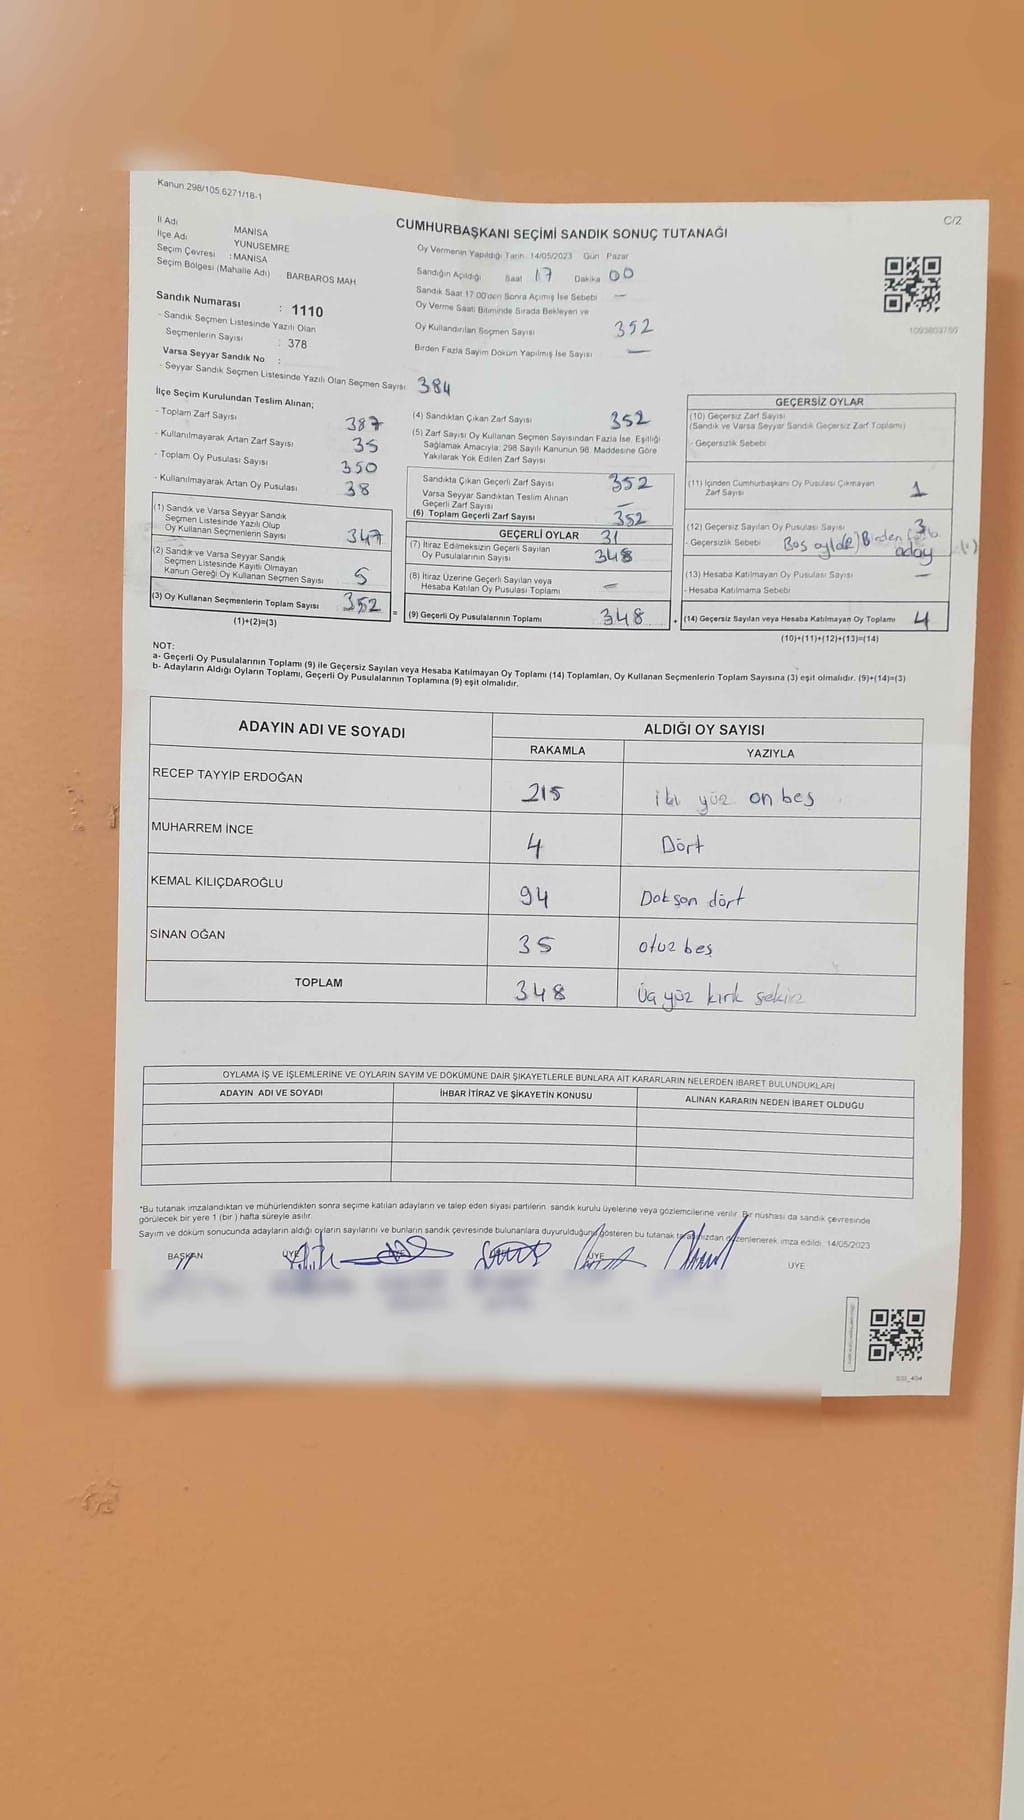 Kanun:298/105;6271/18-1
C/2
CUMHURBAŞKANI SEÇİMİ SANDIK SONUÇ TUTANAĞI
İl Adı MANİSA
İlçe Adı YUNUSEMRE
Seçim Çevresi : MANİSA
Seçim Bölgesi (Mahalle Adı) BARBAROS MAH
Sandık Numarası : 1110
- Sandık Seçmen Listesinde Yazılı Olan
Seçmenlerin Sayısı : 378
Varsa Seyyar Sandık No :
- Seyyar Sandık Seçmen Listesinde Yazılı Olan Seçmen Sayısı 384
Oy Vermenin Yapıldığı Tarih 14/05/2023 Gün Pazar
Sandığın Açıldığı Saat 17 Dakika 00
Sandık Saat 17:00'den Sonra Açımış İse Sebebi —
Oy Verme Saati Bitiminde Sırada Bekleyen ve
Oy Kullandırılan Seçmen Sayısı 352
Birden Fazla Sayım Döküm Yapılmış İse Sayısı —
İlçe Seçim Kurulundan Teslim Alınan;
- Toplam Zarf Sayısı 387
- Kullanılmayarak Artan Zarf Sayısı 35
- Toplam Oy Pusulası Sayısı 350
- Kullanılmayarak Artan Oy Pusulası 38
(1) Sandık ve Varsa Seyyar Sandık
Seçmen Listesinde Yazılı Olup
Oy Kullanan Seçmenlerin Sayısı 347
(2) Sandık ve Varsa Seyyar Sandık
Seçmen Listesinde Kayıtlı Olmayan
Kanun Gereği Oy Kullanan Seçmen Sayısı 5
(3) Oy Kullanan Seçmenlerin Toplam Sayısı 352
(1)+(2)=(3)
(4) Sandıktan Çıkan Zarf Sayısı 352
(5) Zarf Sayısı Oy Kullanan Seçmen Sayısından Fazla İse, Eşitliği
Sağlamak Amacıyla; 298 Sayılı Kanunun 98. Maddesine Göre
Yakılarak Yok Edilen Zarf Sayısı
Sandıkta Çıkan Geçerli Zarf Sayısı 352
Varsa Seyyar Sandıktan Teslim Alınan
Geçerli Zarf Sayısı —
(6) Toplam Geçerli Zarf Sayısı 352
GEÇERLİ OYLAR 31
(7) İtiraz Edilmeksizin Geçerli Sayılan
Oy Pusulalarının Sayısı 348
(8) İtiraz Üzerine Geçerli Sayılan veya
Hesaba Katılan Oy Pusulası Toplamı —
= (9) Geçerli Oy Pusulalarının Toplamı 348
GEÇERSİZ OYLAR
(10) Geçersiz Zarf Sayısı
(Sandık ve Varsa Seyyar Sandık Geçersiz Zarf Toplamı)
- Geçersizlik Sebebi
(11) İçinden Cumhurbaşkanı Oy Pusulası Çıkmayan
Zarf Sayısı 1
(12) Geçersiz Sayılan Oy Pusulası Sayısı 3
- Geçersizlik Sebebi Boş Birden fazla
aday
(13) Hesaba Katılmayan Oy Pusulası Sayısı —
- Hesaba Katılmama Sebebi
+ (14) Geçersiz Sayılan veya Hesaba Katılmayan Oy Toplamı 4
(10)+(11)+(12)+(13)=(14)
NOT:
a- Geçerli Oy Pusulalarının Toplamı (9) ile Geçersiz Sayılan veya Hesaba Katılmayan Oy Toplamı (14) Toplamları, Oy Kullanan Seçmenlerin Toplam Sayısına (3) eşit olmalıdır. (9)+(14)=(3)
b- Adayların Aldığı Oyların Toplamı, Geçerli Oy Pusulalarının Toplamına (9) eşit olmalıdır.
ADAYIN ADI VE SOYADI ALDIĞI OY SAYISI
RAKAMLA YAZIYLA
RECEP TAYYİP ERDOĞAN 215 iki yüz on beş
MUHARREM İNCE 4 Dört
KEMAL KILIÇDAROĞLU 94 Doksan dört
SİNAN OĞAN 35 otuz beş
TOPLAM 348 Üç yüz kırk sekiz
OYLAMA İŞ VE İŞLEMLERİNE VE OYLARIN SAYIM VE DÖKÜMÜNE DAİR ŞİKAYETLERLE BUNLARA AİT KARARLARIN NELERDEN İBARET BULUNDUKLARI
ADAYIN ADI VE SOYADI İHBAR İTİRAZ VE ŞİKAYETİN KONUSU ALINAN KARARIN NEDEN İBARET OLDUĞU
*Bu tutanak imzalandıktan ve mühürlendikten sonra seçime katılan adayların ve talep eden siyasi partilerin sandık kurulu üyelerine veya gözlemcilerine verilir. Bir nüshası da sandık çevresinde
görülecek bir yere 1 (bir) hafta süreyle asılır.
Sayım ve döküm sonucunda adayların aldığı oyların sayılarını ve bunların sandık çevresinde bulunanlara duyurulduğunu gösteren bu tutanak tarafımızdan düzenlenerek imza edildi. 14/05/2023
BAŞKAN ÜYE ÜYE ÜYE ÜYE